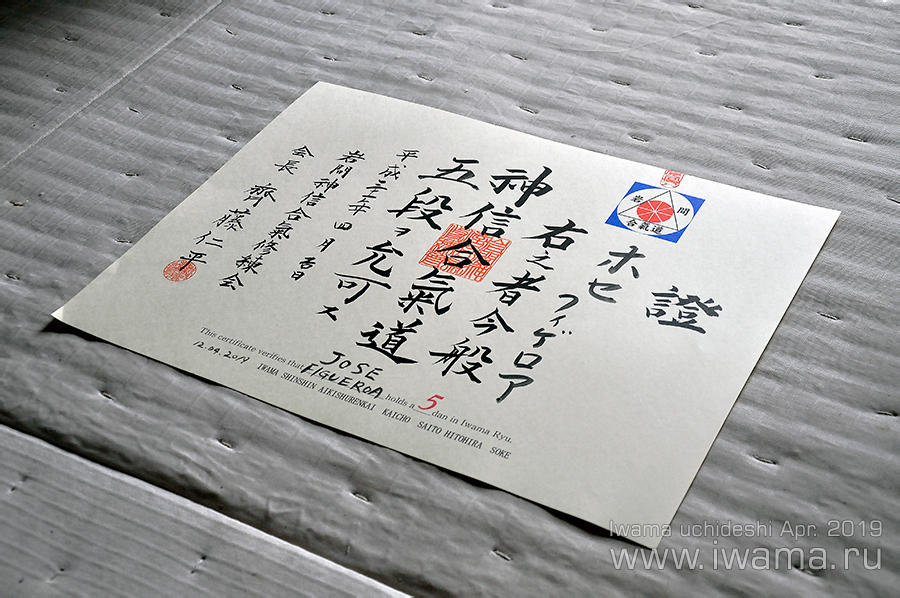 證
岩間
合氣道
ホセ フィゲロア
右之者今般
神信合氣道
五段ヲ允可ス
平成 年四月 日
岩間神信合氣修練会
会長 齋藤仁平
This certificate verifies that JOSE FIGUEROA holds a 5 dan in Iwama Ryu.
12.04.2019
IWAMA SHINSHIN AIKISHURENKAI KAICHO SAITO HITOHIRA SOKE
Iwama uchideshi Apr. 2019
www.iwama.ru